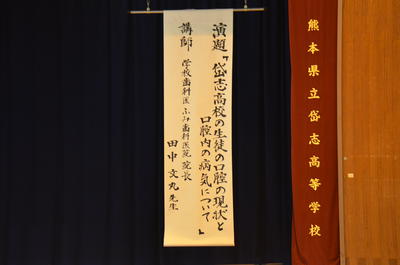 演題「岱志高校の生徒の口腔の現状と
口腔内の病気について」
講師 学校歯科医 ふみ歯科医院 院長
田中 文丸 先生
熊本県立岱志高等学校